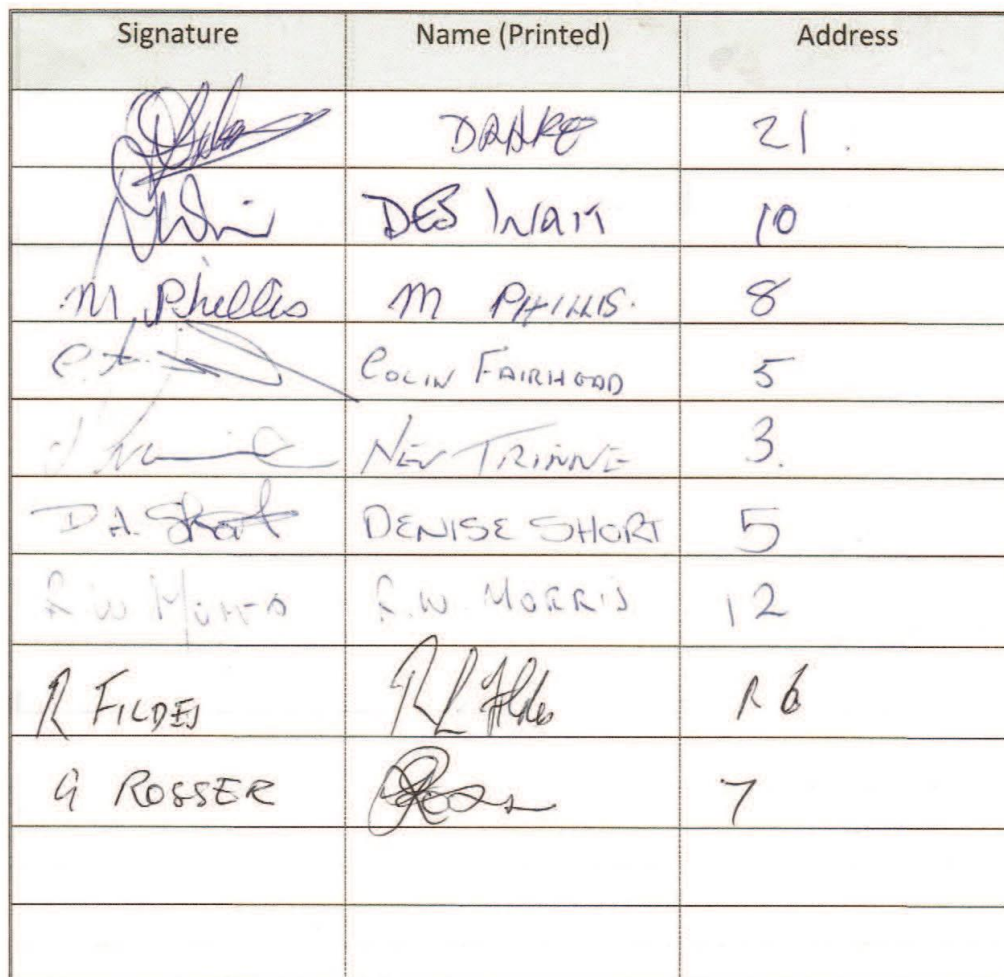 Signature Name (Printed) Address
DRAKE 21.
DES WAIT 10
M. Phillis M PHILLIS. 8
COLIN FAIRHEAD 5
NEV TRINNE 3.
D A. Short DENISE SHORT 5
R W Morris R.W. MORRIS 12
R FILDES R L Fildes 6
G ROSSER 7